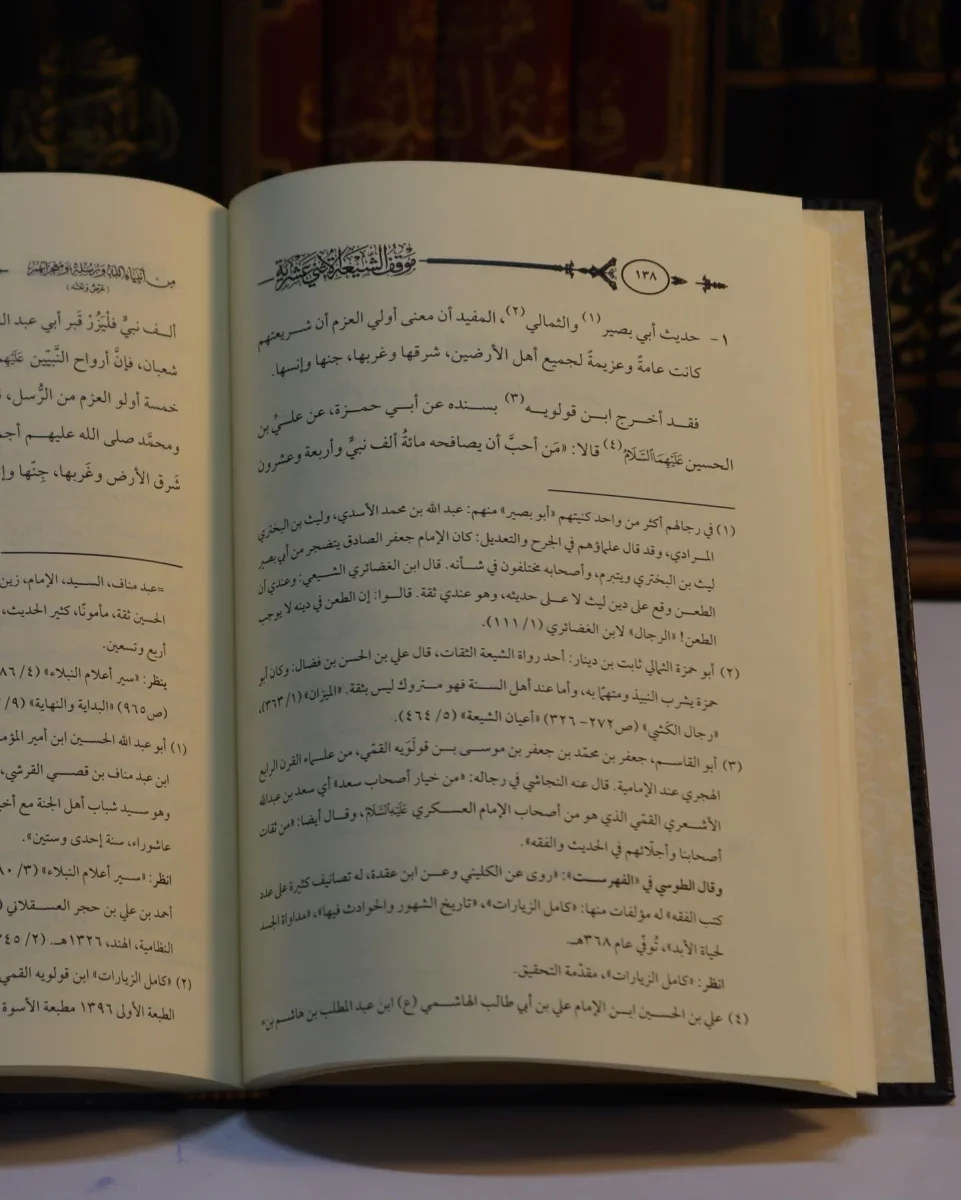 موقف الشيعة الاثني عشرية
١٣٨
١- حديث أبي بصير(١) والثمالي(٢)، المفيد أن معنى أولي العزم أن شريعتهم
كانت عامةً وعزيمةً لجميع أهل الأرضين، شرقها وغربها، جنها وإنسها.
فقد أخرج ابن قولويه(٣) بسنده عن أبي حمزة، عن عليُّ بن
الحسين عَلَيْهِمَا ٱلسَّلَامُ(٤) قالا: «مَن أحبَّ أن يصافحه مائةُ ألف نبيٍّ وأربعة وعشرون
(١) في رجالهم أكثر من واحد كنيتهم «أبو بصير» منهم: عبد الله بن محمد الأسدي، وليث بن البختري
المرادي، وقد قال علماؤهم في الجرح والتعديل: كان الإمام جعفر الصادق يتضجر من أبي بصير
ليث بن البختري ويتبرم، وأصحابه مختلفون في شأنه. قال ابن الغضائري الشيعي: وعندي أن
الطعن وقع على دين ليث لا على حديثه، وهو عندي ثقة. قالوا: إن الطعن في دينه لا يوجب
الطعن! «الرجال» لابن الغضائري (١/ ١١١).
(٢) أبو حمزة الثمالي ثابت بن دينار: أحد رواة الشيعة الثقات، قال علي بن الحسن بن فضال: وكان أبو
حمزة يشرب النبيذ ومتهمًا به، وأما عند أهل السنة فهو متروك ليس بثقة. «الميزان» (١/ ٣٦٣)،
«رجال الكَشي» (ص٢٧٢- ٣٢٦) «أعيان الشيعة» (٥/ ٤٦٤).
(٣) أبو القاسم، جعفر بن محمّد بن جعفر بن موسى بن قولَوَيه القمّي، من علماء القرن الرابع
الهجري عند الإمامية. قال عنه النجاشي في رجاله: «من خيار أصحاب سعد» أي سعد بن عبدالله
الأشعري القمّي الذي هو من أصحاب الإمام العسكري عَلَيْهِ ٱلسَّلَامُ، وقال أيضا: «من ثقات
أصحابنا وأجلّائهم في الحديث والفقه».
وقال الطوسي في «الفهرست»: «روى عن الكليني وعن ابن عقدة، له تصانيف كثيرة على عدد
كتب الفقه» له مؤلفات منها: «كامل الزيارات»، «تاريخ الشهور والحوادث فيها»، «مداواة الجسد
لحياة الأبد»، تُوفّي عام ٣٦٨هـ.
انظر: «كامل الزيارات»، مقدّمة التحقيق.
(٤) علي بن الحسين ابن الإمام علي بن أبي طالب الهاشمي (ع) ابن عبد المطلب بن هاشم بن=
من أنبياء الله ورسله ومعجزاتهم
(عرض ونقد)
ألف نبيٍّ فلْيَزُرْ قبر أبي عبد
شعبان، فإنَّ أرواح النَّبيّين
خمسة أولو العزم من الرُّسل،
ومحمَّد صلى الله عليهم
شَرق الأرض وغَربها، جِنّها
=عبد مناف، السيد، الإمام، زين
الحسين ثقة، مأمونًا، كثير الحديث،
أربع وتسعين.
ينظر: «سير أعلام النبلاء» (٤/
(ص٩٦٥) «البداية والنهاية» (٩/
(١) أبو عبد الله الحسين ابن أمير
ابن عبد مناف بن قصي القرشي،
وهو سيد شباب أهل الجنة مع
عاشوراء، سنة إحدى وستين».
انظر: «سير أعلام النبلاء» (٣/
أحمد بن علي بن حجر العسقلاني
النظامية، الهند، ١٣٢٦هـ. (٢/
(٢) «كامل الزيارات» ابن قولويه القمي
الطبعة الأولى ١٣٩٦ مطبعة الأسوة